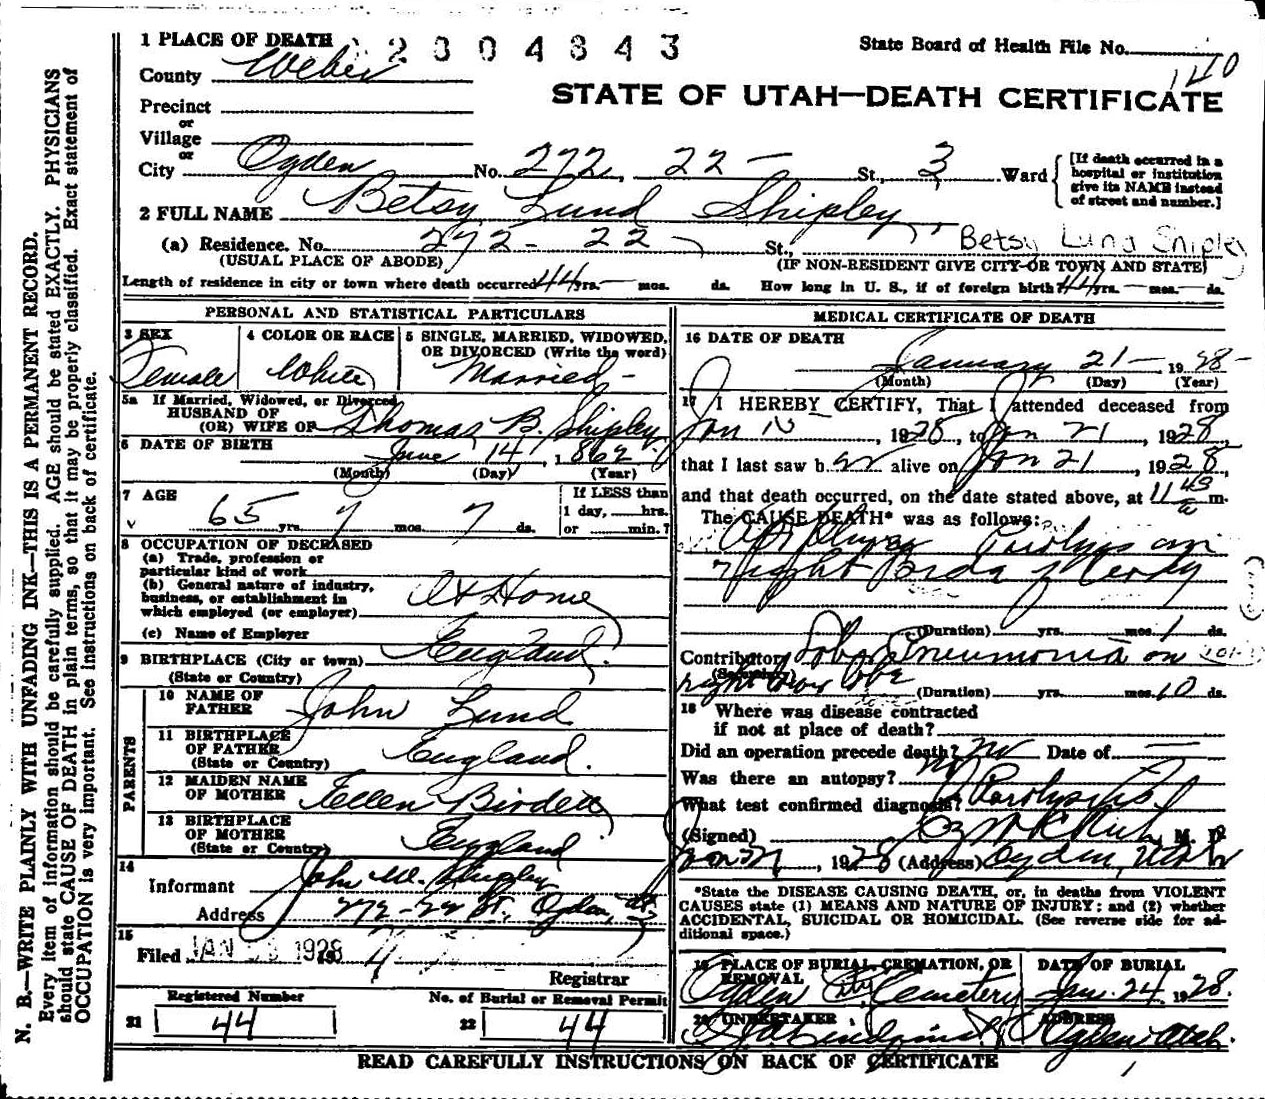 1 PLACE OF DEATH
2804843
State Board of Health File No.
140
County Weber
STATE OF UTAH—DEATH CERTIFICATE
Precinct
or
Village
or
City Ogden No. 272 22 — St., 3 Ward
[If death occurred in a
hospital or institution
give its NAME instead
of street and number.]
2 FULL NAME Betsy Lund Shipley
(a) Residence. No. 272 - 22 St., Betsy Lund Shipley
(USUAL PLACE OF ABODE) (IF NON-RESIDENT GIVE CITY OR TOWN AND STATE)
Length of residence in city or town where death occurred 44 yrs. — mos. ds. How long in U. S., if of foreign birth? 44 yrs. — mos. — ds.
PERSONAL AND STATISTICAL PARTICULARS
3 SEX
Female
4 COLOR OR RACE
White
5 SINGLE, MARRIED, WIDOWED,
OR DIVORCED (Write the word)
Married -
5a If Married, Widowed, or Divorced
HUSBAND OF
(OR) WIFE OF Thomas B. Shipley
6 DATE OF BIRTH
June 14, 1862
(Month) (Day) (Year)
7 AGE
65 yrs. 7 mos. 7 ds.
If LESS than
1 day, hrs.
or min.?
8 OCCUPATION OF DECEASED
(a) Trade, profession or
particular kind of work
(b) General nature of industry,
business, or establishment in
which employed (or employer) At Home
(c) Name of Employer
9 BIRTHPLACE (City or town) England.
(State or Country)
PARENTS
10 NAME OF
FATHER John Lund
11 BIRTHPLACE
OF FATHER England.
(State or Country)
12 MAIDEN NAME
OF MOTHER Ellen
13 BIRTHPLACE
OF MOTHER England
(State or Country)
14
Informant John W. Shipley
Address 272 - 22 St., Ogden,
15
Filed JAN 1928
Registrar
Registered Number
21 44
No. of Burial or Removal Permit
22 44
MEDICAL CERTIFICATE OF DEATH
16 DATE OF DEATH
January 21 — 1928 -
(Month) (Day) (Year)
17 I HEREBY CERTIFY, That I attended deceased from
Jan , 1928, to Jan 21, 1928,
that I last saw her alive on Jan 21, 1928,
and that death occurred, on the date stated above, at 11 a m.
The CAUSE DEATH* was as follows:
Paralysis on
right side of body
(Duration) yrs. mos. 1 ds.
Contributory Lobar Pneumonia on
(Secondary)
right lower lobe
(Duration) yrs. mos. 10 ds.
18 Where was disease contracted
if not at place of death?
Did an operation precede death? no Date of —
Was there an autopsy? no
What test confirmed diagnosis?
(Signed) M. D.
, 1928 (Address) Ogden, Utah
*State the DISEASE CAUSING DEATH, or, in deaths from VIOLENT
CAUSES state (1) MEANS AND NATURE OF INJURY; and (2) whether
ACCIDENTAL, SUICIDAL OR HOMICIDAL. (See reverse side for ad-
ditional space.)
19 PLACE OF BURIAL, CREMATION, OR
REMOVAL
Ogden City Cemetery
DATE OF BURIAL
Jan. 24, 1928.
20 UNDERTAKER
ADDRESS
Ogden Utah.
READ CAREFULLY INSTRUCTIONS ON BACK OF CERTIFICATE
N. B.—WRITE PLAINLY WITH UNFADING INK—THIS IS A PERMANENT RECORD.
Every item of information should be carefully supplied. AGE should be stated EXACTLY. PHYSICIANS
should state CAUSE OF DEATH in plain terms, so that it may be properly classified. Exact statement of
OCCUPATION is very important. See instructions on back of certificate.